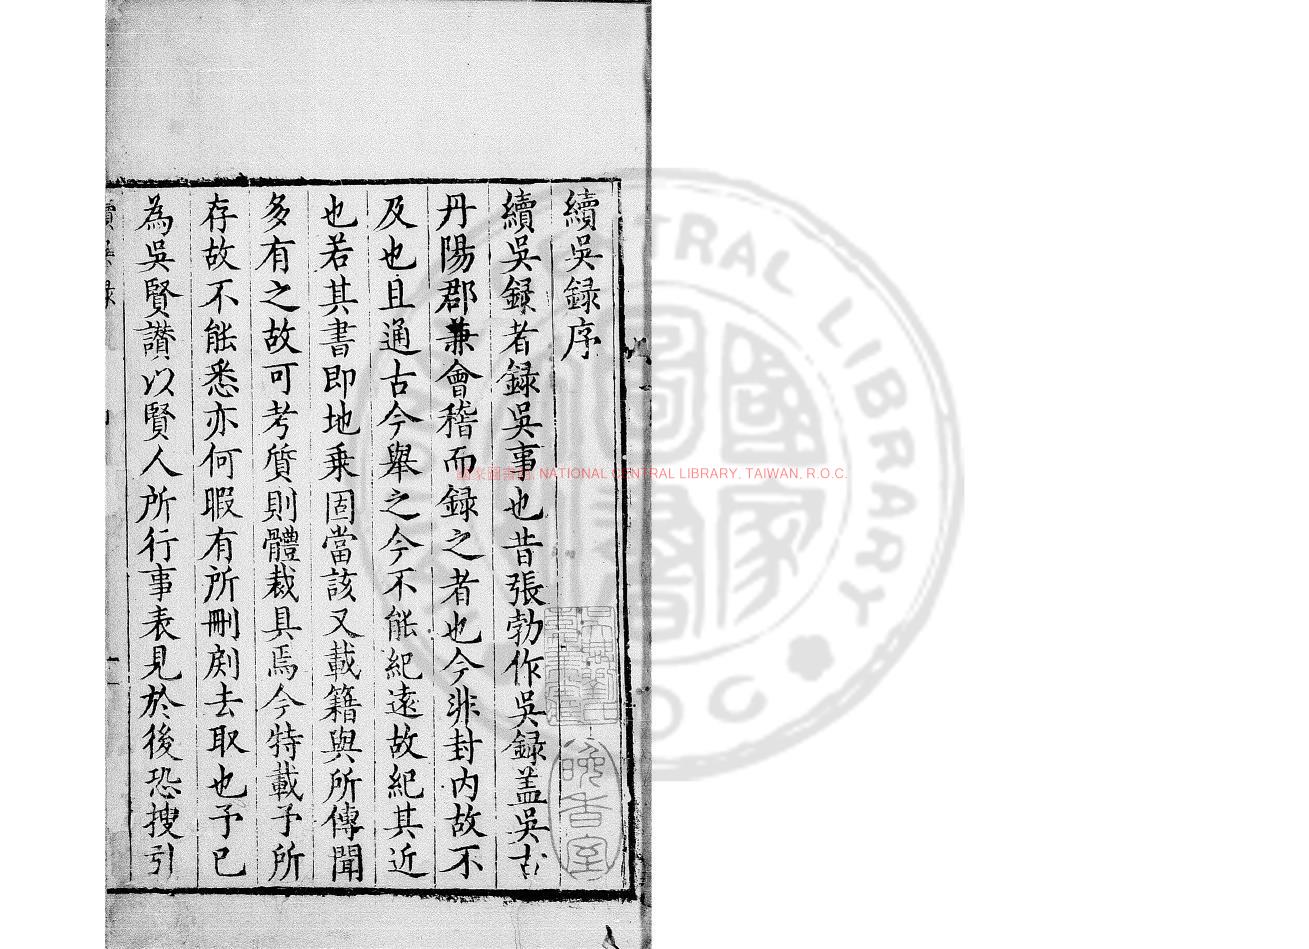 續吳録序
續吳録者録吳事也昔張勃作吳録盖吳古
丹陽郡兼會稽而録之者也今非封内故不
及也且通古今舉之今不能紀遠故紀其近
也若其書即地乘固當該又載籍與所傳聞
多有之故可考質則體裁具焉今特載予所
存故不能悉亦何暇有所刪剟去取也予已
為吳賢讃以賢人所行事表見於後恐搜引
晚香室
國家圖書館 NATIONAL CENTRAL LIBRARY, TAIWAN, R.O.C.